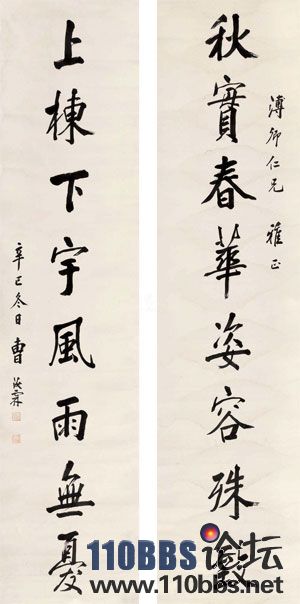 秋實春華姿容殊
溥卿仁兄 雅正
上棟下宇風雨無憂
辛巳冬日 曹
110BBS论坛
www.110bbs.net